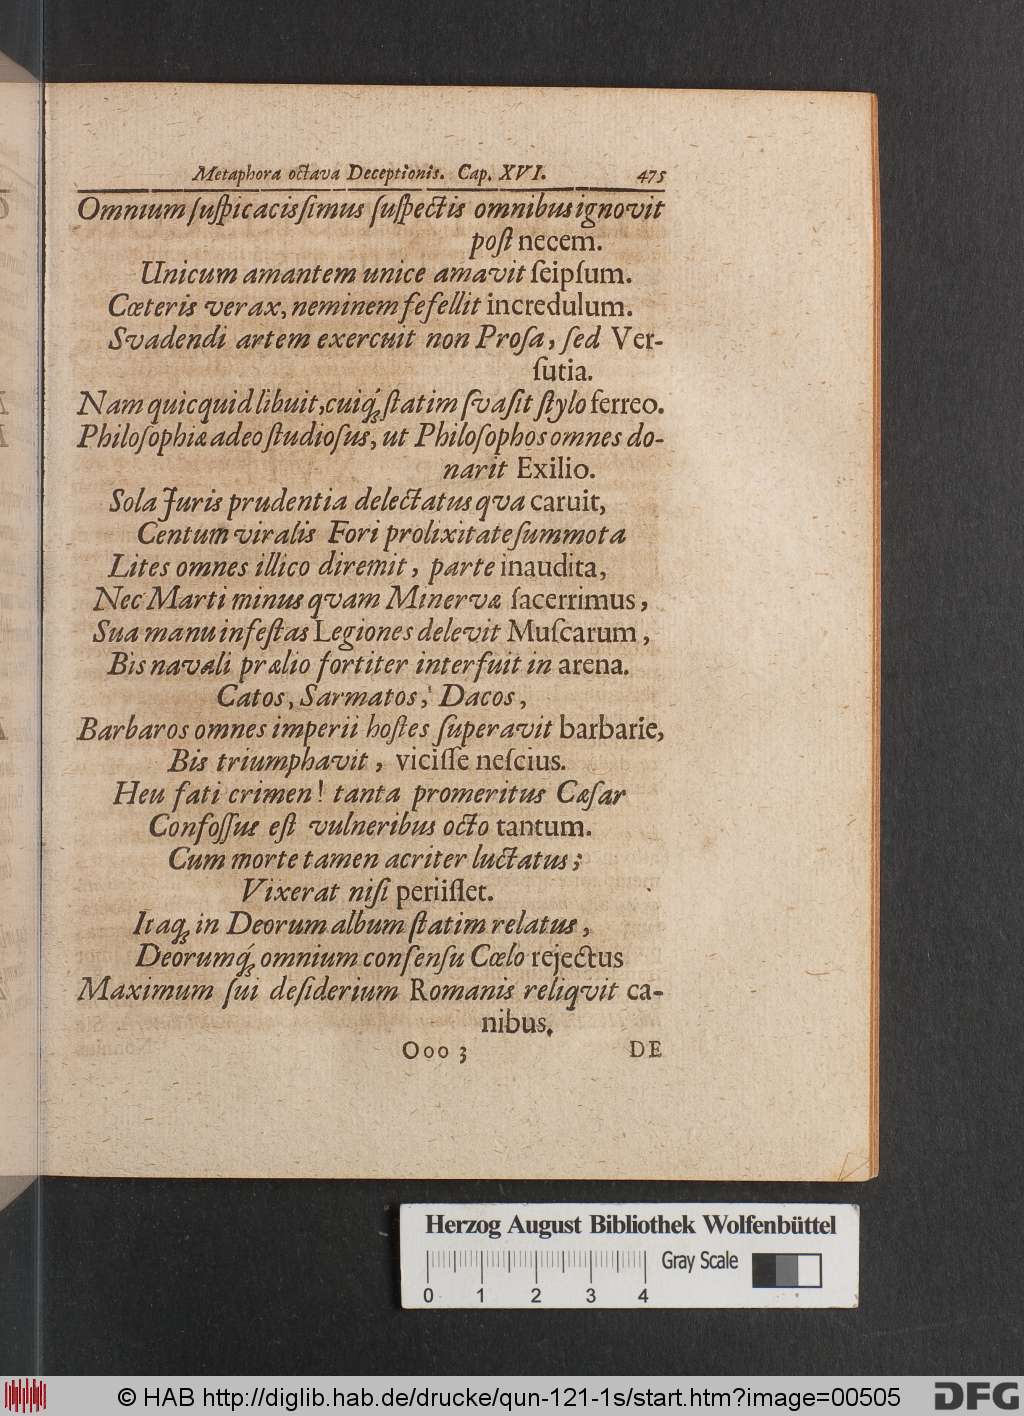 Metaphora octava Deceptionis. Cap. XVI. 475
Omnium ſuſpicacisſimus ſuſpectis omnibus ignovit
poſt necem.
Unicum amantem unice amavit ſeipſum.
Cœteris verax, neminem fefellit incredulum.
Svadendi artem exercuit non Proſa, ſed Ver-
ſutia.
Nam quicquid libuit, cuiq́; ſtatim ſvaſit ſtylo ferreo.
Philoſophiæ adeo ſtudioſus, ut Philoſophos omnes do-
narit Exilio.
Sola Juris prudentia delectatus qva caruit,
Centum viralis Fori prolixitate ſummota
Lites omnes illico diremit, parte inaudita,
Nec Marti minus qvam Minervæ ſacerrimus,
Sua manu infeſtas Legiones delevit Muſcarum,
Bis navali prælio fortiter interfuit in arena.
Catos, Sarmatos, Dacos,
Barbaros omnes imperii hoſtes ſuperavit barbarie,
Bis triumphavit, viciſſe neſcius.
Heu fati crimen! tanta promeritus Cæſar
Confoſſus eſt vulneribus octo tantum.
Cum morte tamen acriter luctatus;
Vixerat niſi periiſſet.
Itaq; in Deorum album ſtatim relatus,
Deorumq́; omnium conſenſu Cœlo rejectus
Maximum ſui deſiderium Romanis reliqvit ca-
nibus.
Ooo 3 DE
Herzog August Bibliothek Wolfenbüttel
Gray Scale
0 1 2 3 4
© HAB http://diglib.hab.de/drucke/qun-121-1s/start.htm?image=00505
DFG